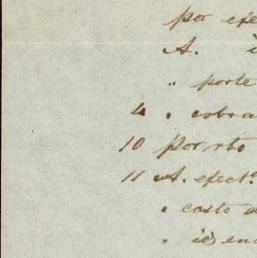 por efe
A.
" porte
4 " cobra
10 por rbo
11 A. efect.
" costo
" id en